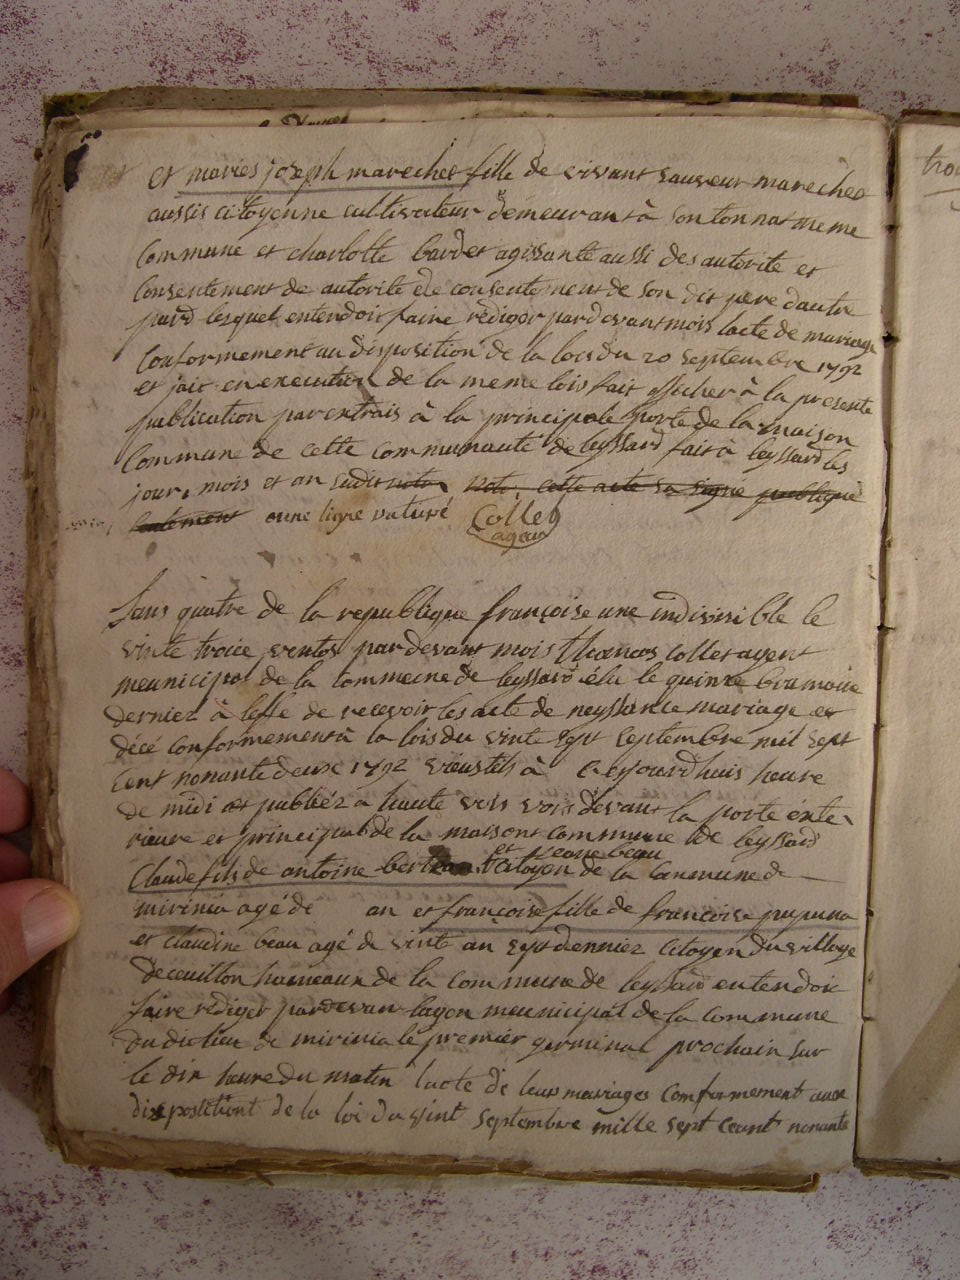 et maries joseph marechet fille de vivant sauveur marechet
aussis citoyenne cultivateur démeurant à sontonnas meme
Commune et charlotte bardet agissante aussi des autorite et
Consentement de autorite ede consentement de son dit pere dautre
pard lesquel entendoit faire rediger pardevant mois lacte de mariage
Conformement au disposition de la lois du 20 septembre 1792
et fait en execution de la meme lois fait afficher à la presente
publication par extrais à la principale porte de la maison
Commune de cette communauté de leyssard fait à leyssard les
jour, mois et an sudit nota nota, cette acte sa signé publique
seulement onne ligne raturé Collet
agean
Lans quatre de la republique françoise une indivisible le
vinte troice ventos pardevant mois thomas Collet agent
meunicipal de la Commeune de leyssard élu le quinze brumaire
derniez à leffe de recevoir les acte de neyssance mariage et
décé conformement à la lois du vinte sept septembre mil sept
Cent nonante deux 1792 vieustils à Cejourdhuis heure
de midi et publiéz a haute vois vois devant la porte énte
rieure et principal de la maisont commune de leyssard
et jeanne beau
Claude fils de antoine Citoyen de la Commune de
mirinia agé de an et françoise fille de françois pupuna
et claudine beau agé de vinte an sept derniez Citoyen du village
deceuillon hameaux de la commune de leyssard entendoit
faire rediger pardevan lagen meunicipal de la Commune
du dit lieu de mirinia le premier germinal prochain sur
le dix heure du matin lacte de leur mariages Conformement aux
dispositiont de la loi du vint septembre mille sept ceant nonante